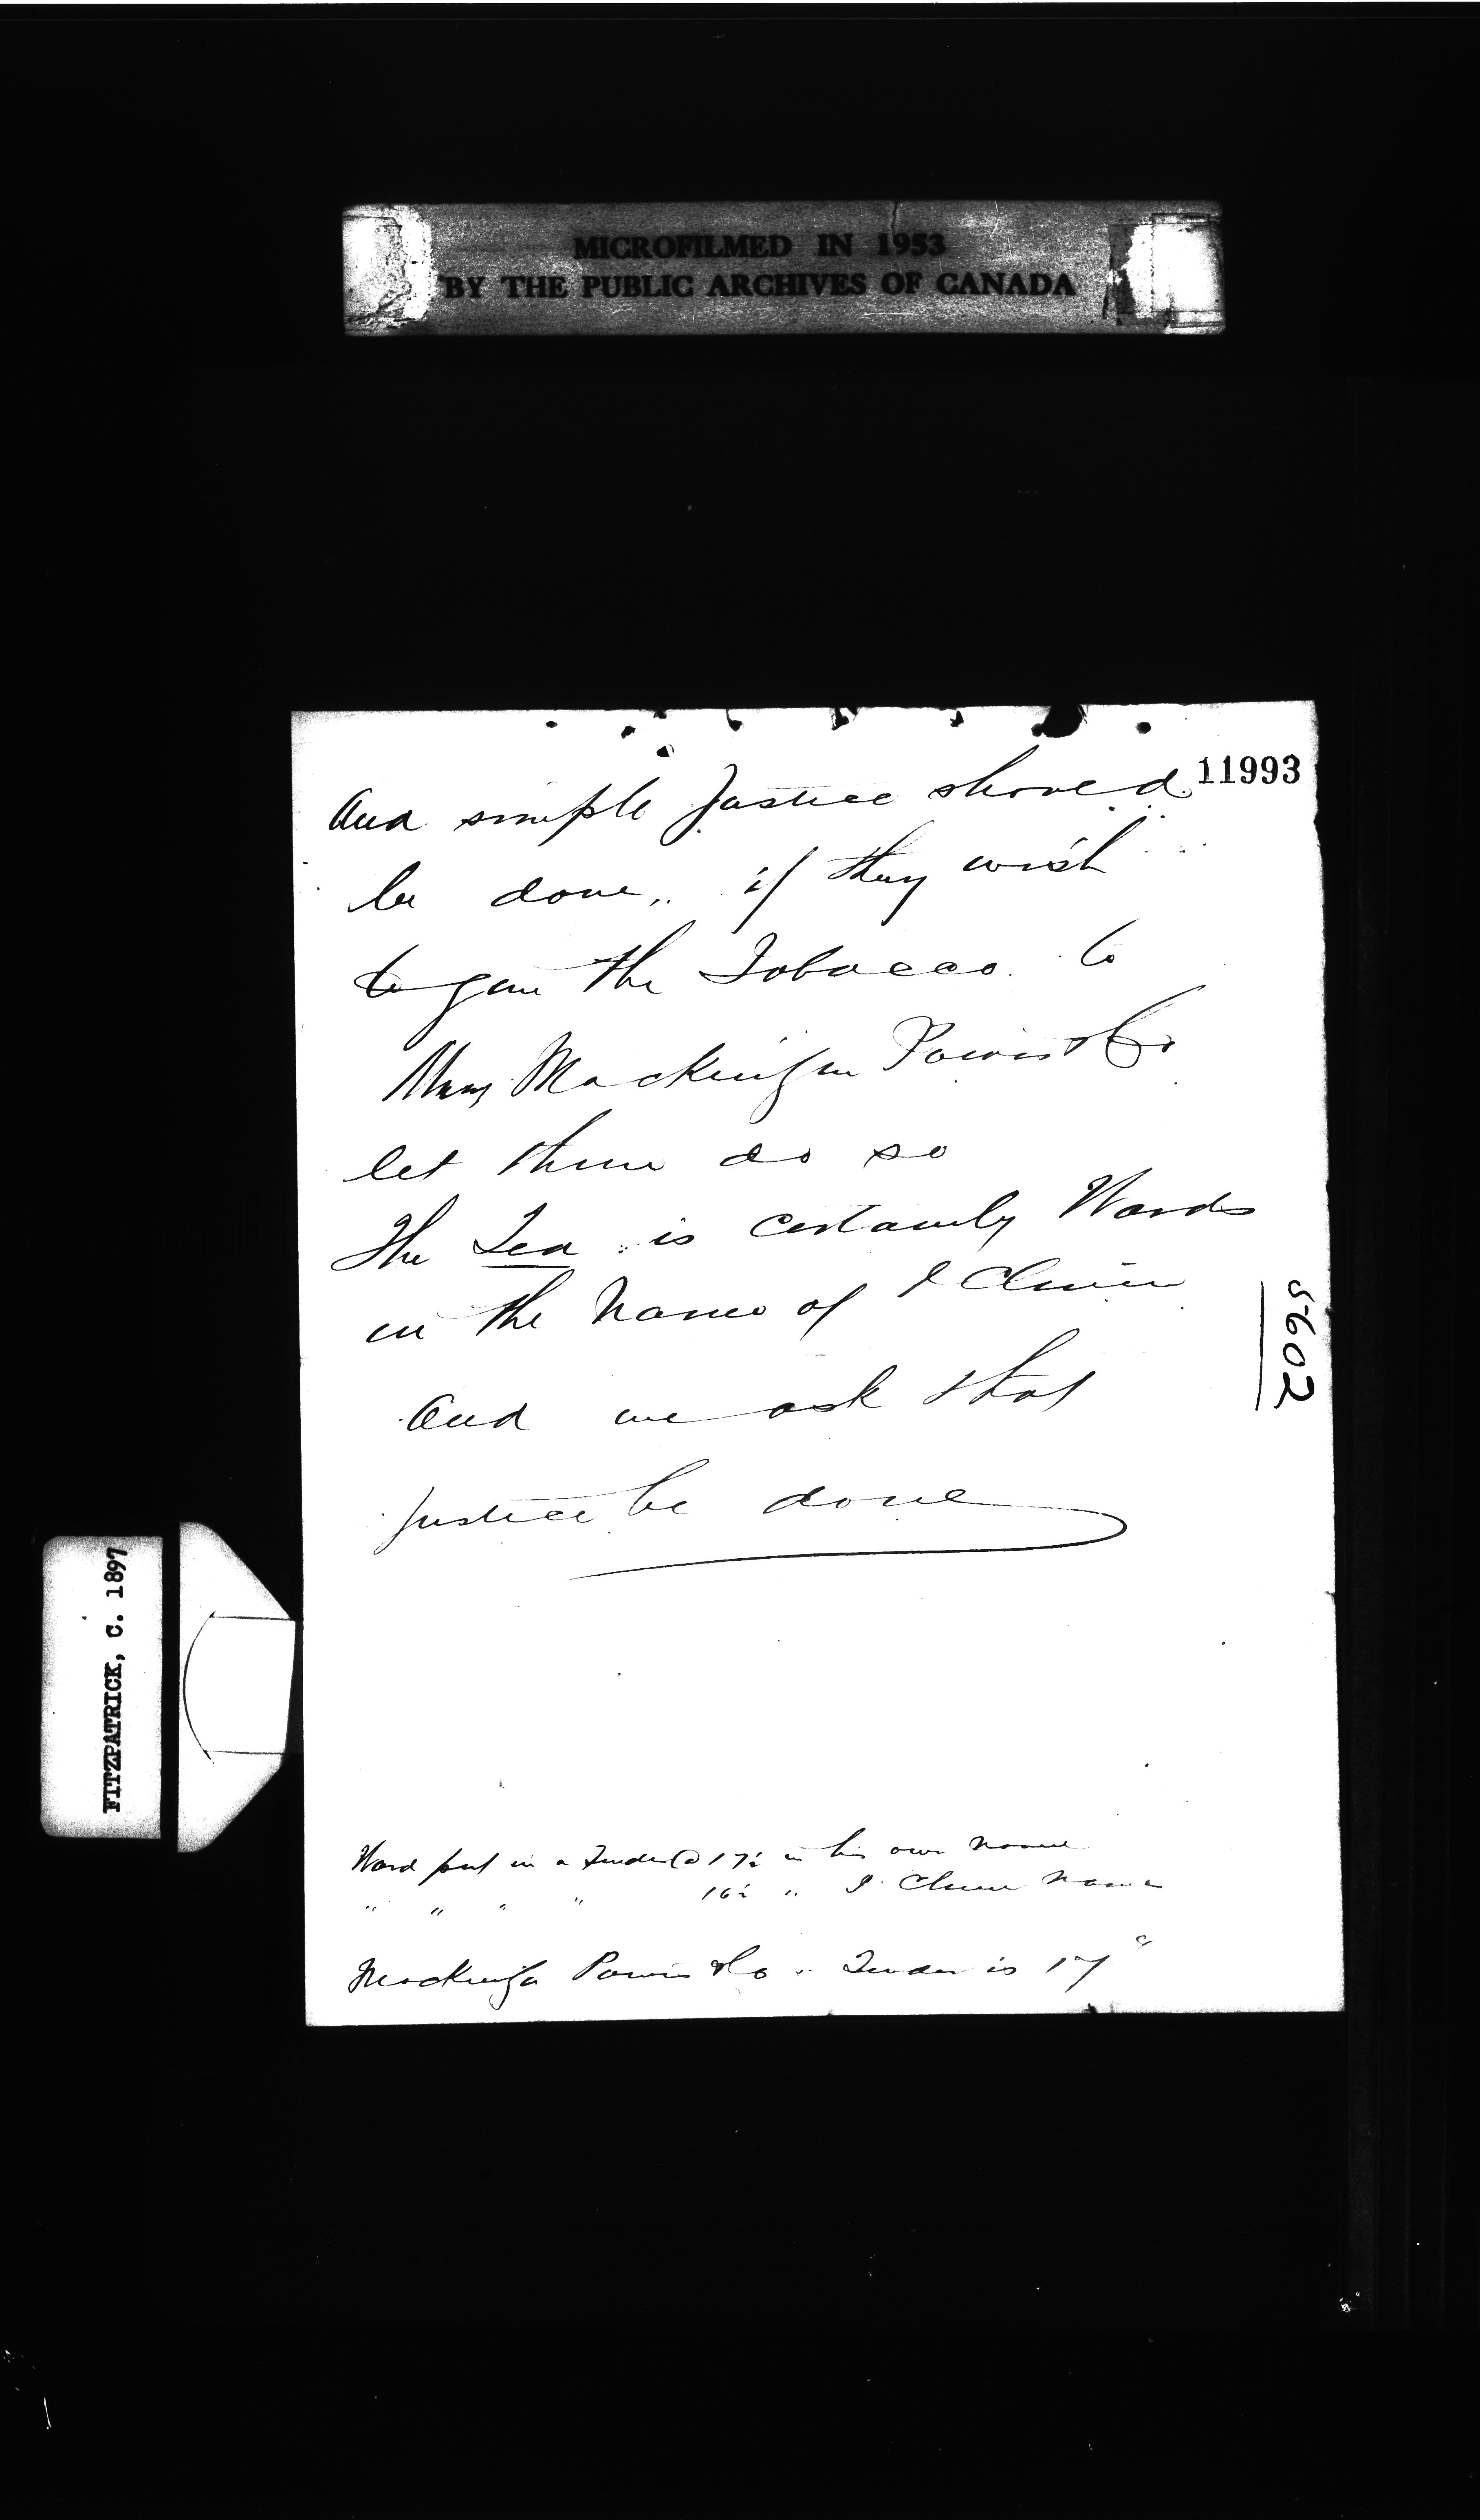 MICROFILMED IN 1953
BY THE PUBLIC ARCHIVES OF CANADA
11993
And simple Justice should
be done,, if they wish
to give the Tobacco to
Mess Mackenzie Powis & Co
let them do so
The Tea is certainly Wards
in the Name of
And we ask that
Justice be done
5602
FITZPATRICK, C. 1897
Ward put in a Tender @ 17½ in his own Name
" " " " 16½ " Name
Mackenzie Powis & Co. Tender is 17c